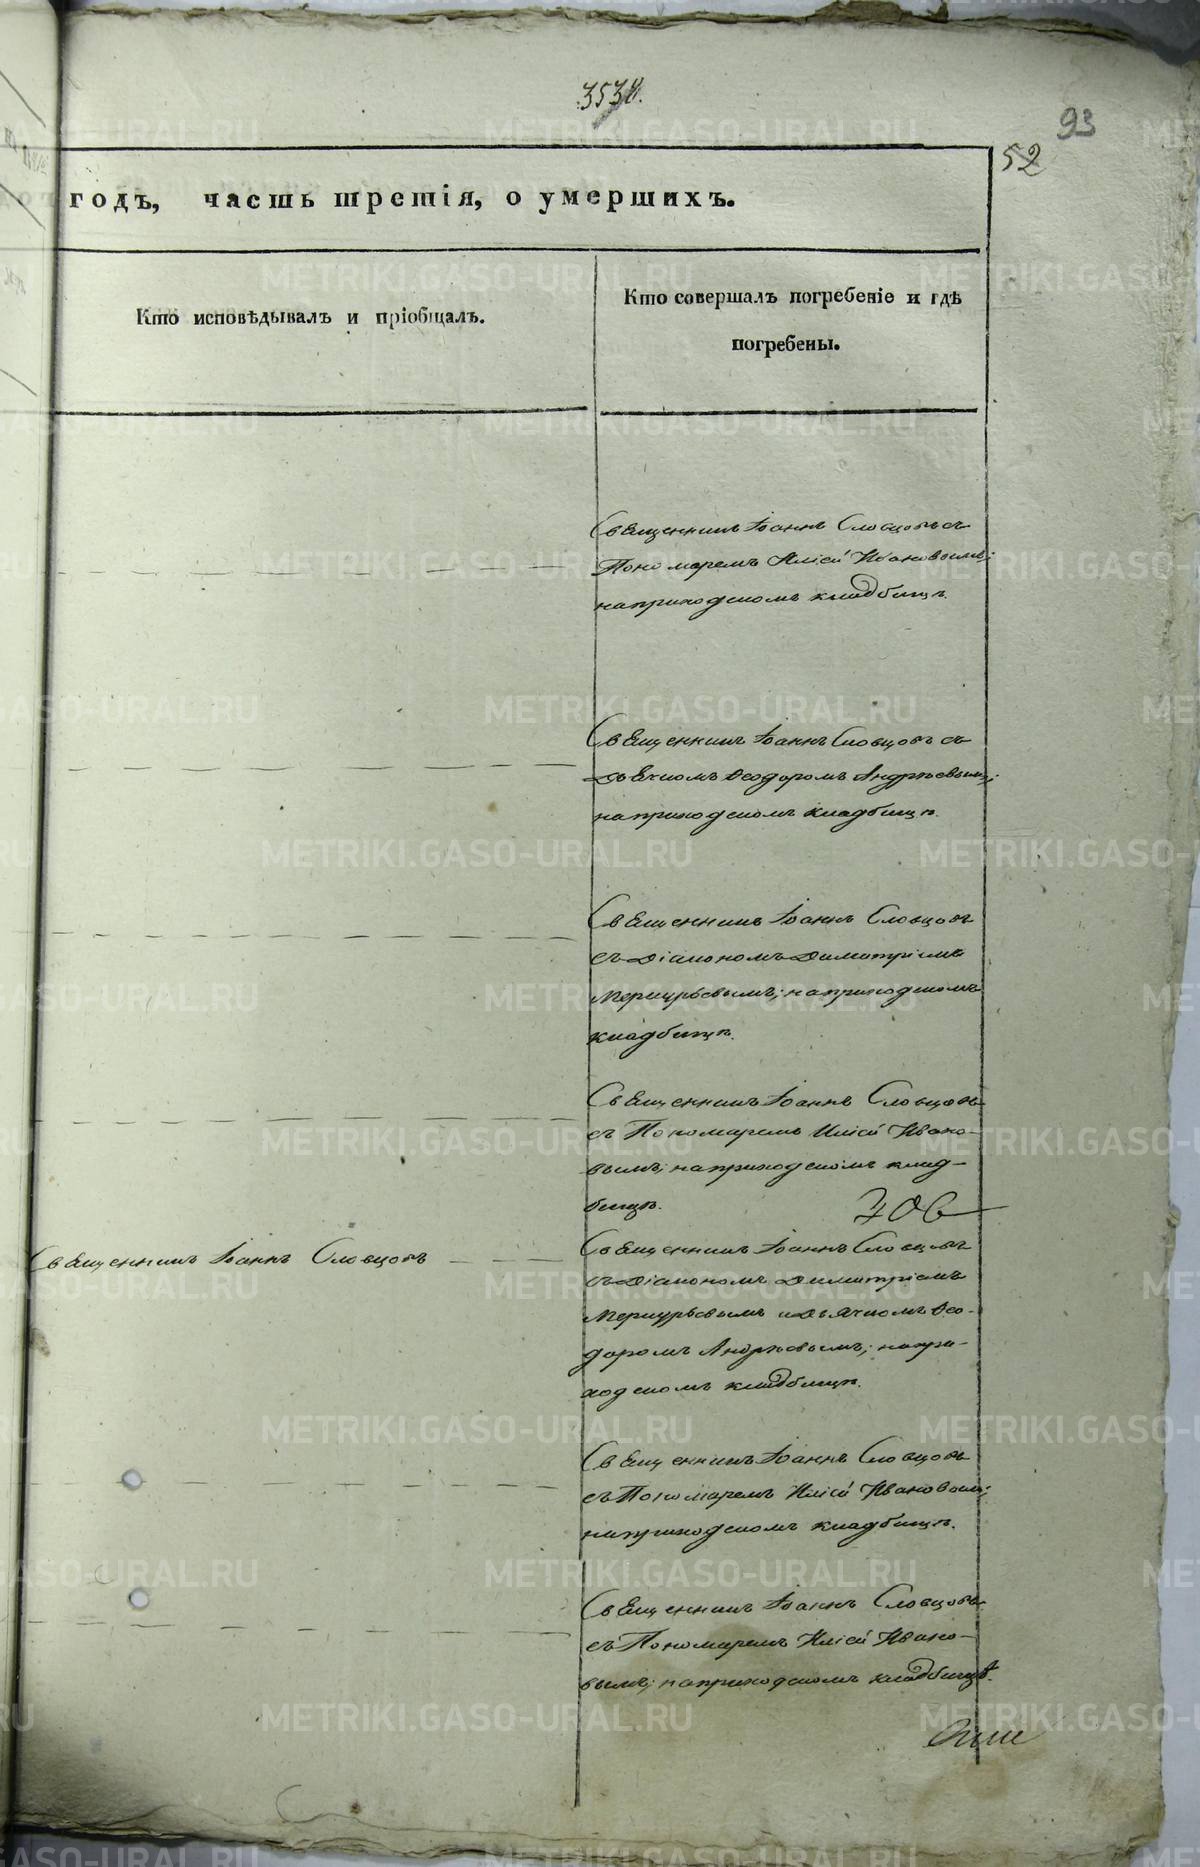 353
93
52
годъ, часть третія, о умершихъ.
Кто исповѣдывалъ и пріобщалъ.
Кто совершалъ погребеніе и гдѣ
погребены.
Священникъ Іоаннъ Словцовъ съ
Пономаремъ Иліей Ивановымъ;
на приходскомъ кладбищѣ.
Священникъ Іоаннъ Словцовъ съ
Дьячкомъ Ѳеодоромъ Андрѣевымъ;
на приходскомъ кладбищѣ.
Священникъ Іоаннъ Словцовъ
съ Діакономъ Димитріемъ
Меркурьевымъ; на приходскомъ
кладбищѣ.
Священникъ Іоаннъ Словцовъ
съ Пономаремъ Иліей Ивано-
вымъ; на приходскомъ клад-
бищѣ.
Священникъ Іоаннъ Словцовъ
Священникъ Іоаннъ Словцовъ
съ Діакономъ Димитріемъ
Меркурьевымъ и Дьячкомъ Ѳео-
доромъ Андрѣевымъ; на при-
ходскомъ кладбищѣ.
Священникъ Іоаннъ Словцовъ
съ Пономаремъ Иліей Ивановымъ;
на приходскомъ кладбищѣ.
Священникъ Іоаннъ Словцовъ
съ Пономаремъ Иліей Ивано-
вымъ; на приходскомъ кладбищѣ.
METRIKI.GASO-URAL.RU